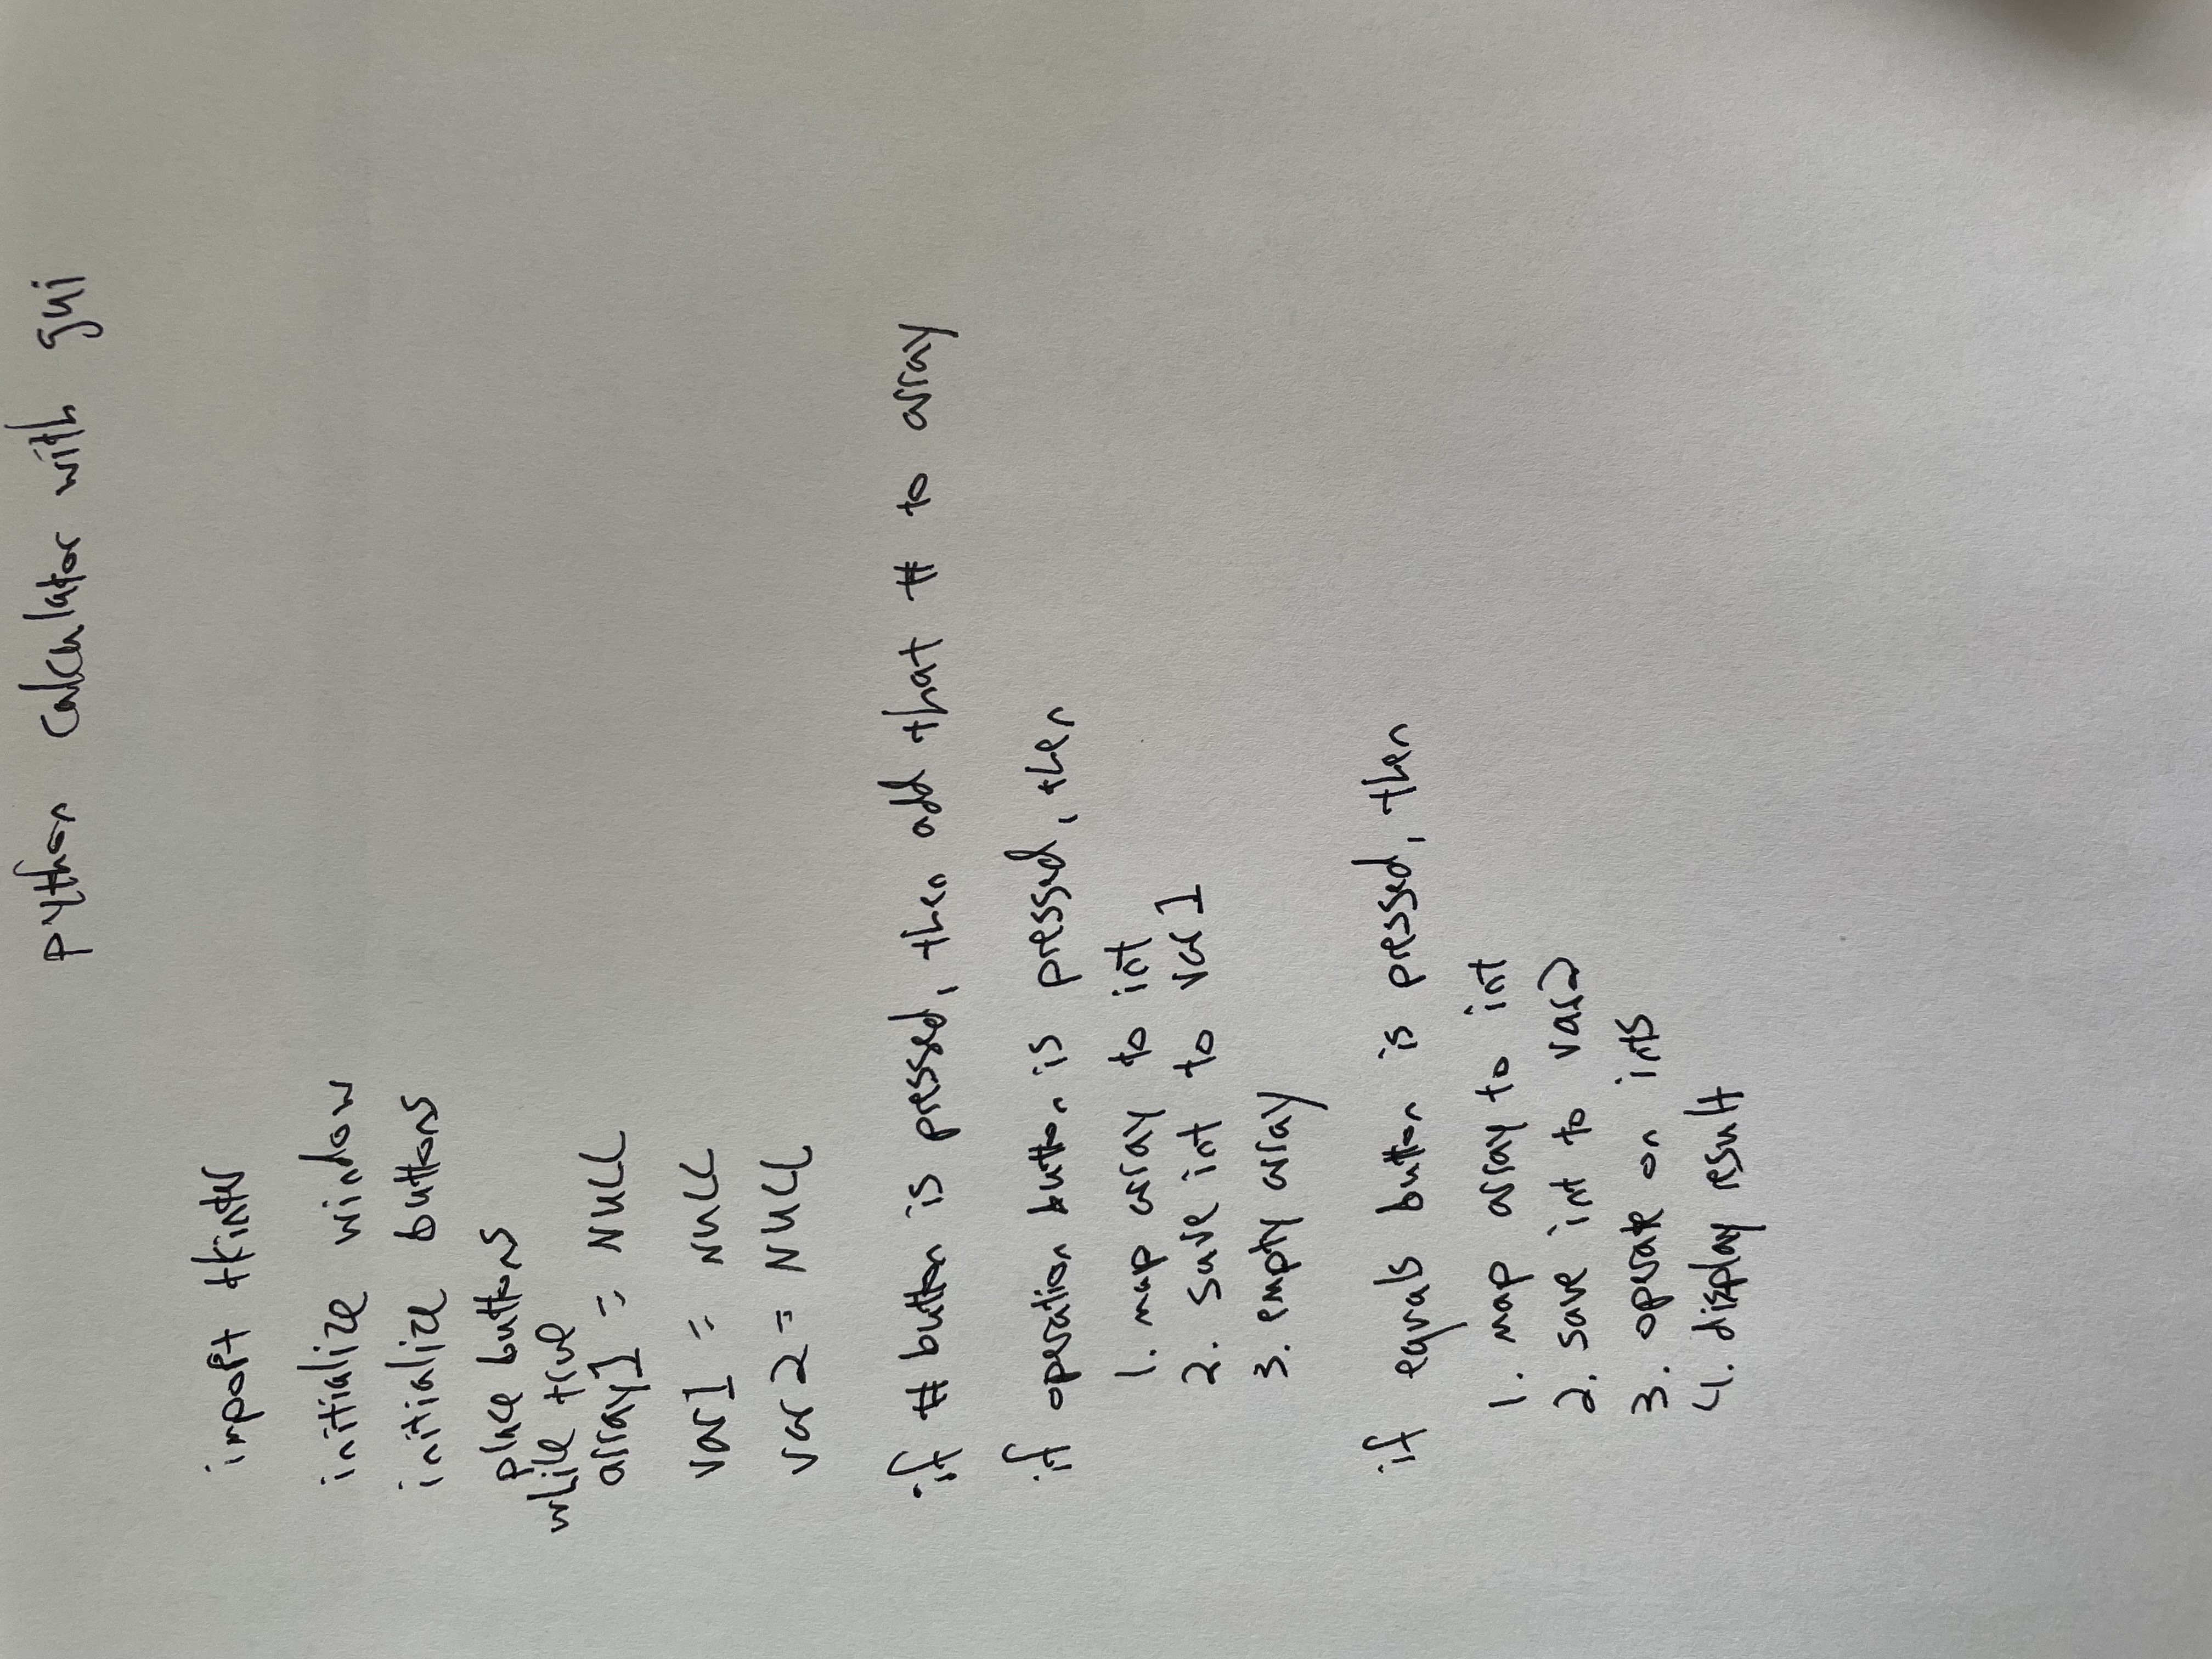 python calculator with gui
import tkinter
initialize window
initialize buttons
place buttons
while true
array1 = NULL
var1 = NULL
var2 = NULL
if # button is pressed, then add that # to array
if operation button is pressed, then
1. map array to int
2. save int to var1
3. empty array
if equals button is pressed, then
1. map array to int
2. save int to var2
3. operate on ints
4. display result